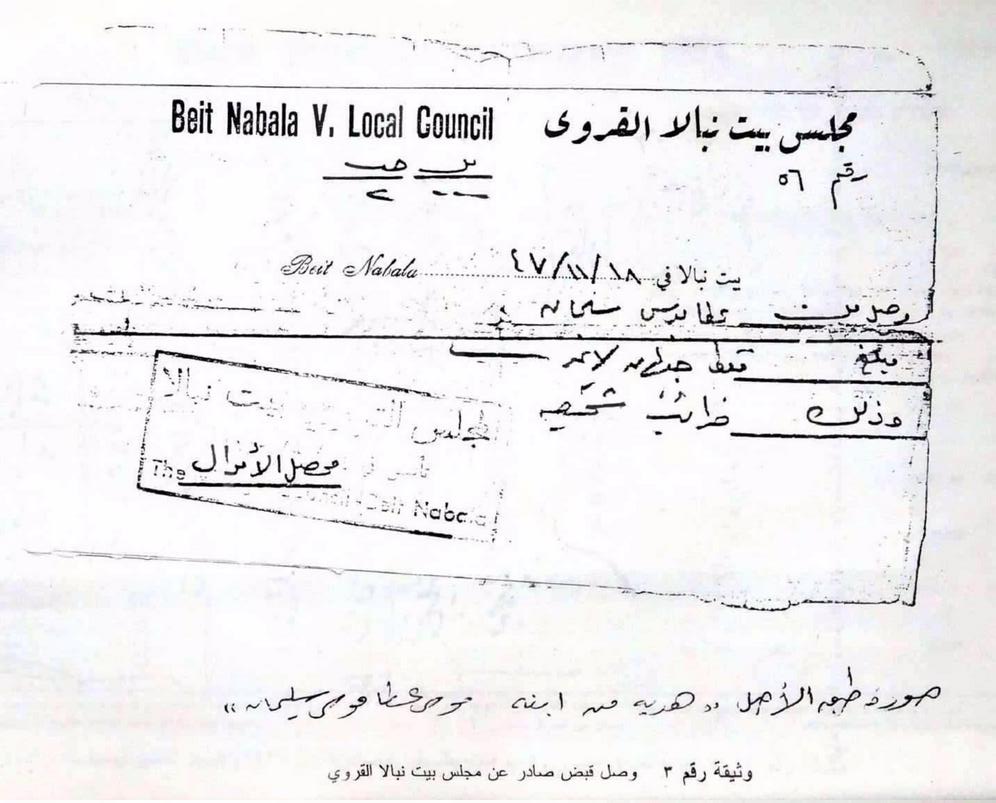 Beit Nabala V. Local Council مجلس بيت نبالا القروى
رقم ٥٦
مل جـ
-- ٢
Beit Nabala بيت نبالا في ٤٧/١١/١٨
وصل من عطا موسى سليمان
مبلغ فقط جنيهان لا غير
وذلك ضرائب شخصيه
المجلس القروي بيت نبالا
محصل الأموال
The Council Beit Nabala
صورة طبق الأصل «هديه من ابنه موسى عطا موسى سليمان»
وثيقة رقم ٣ وصل قبض صادر عن مجلس بيت نبالا القروي